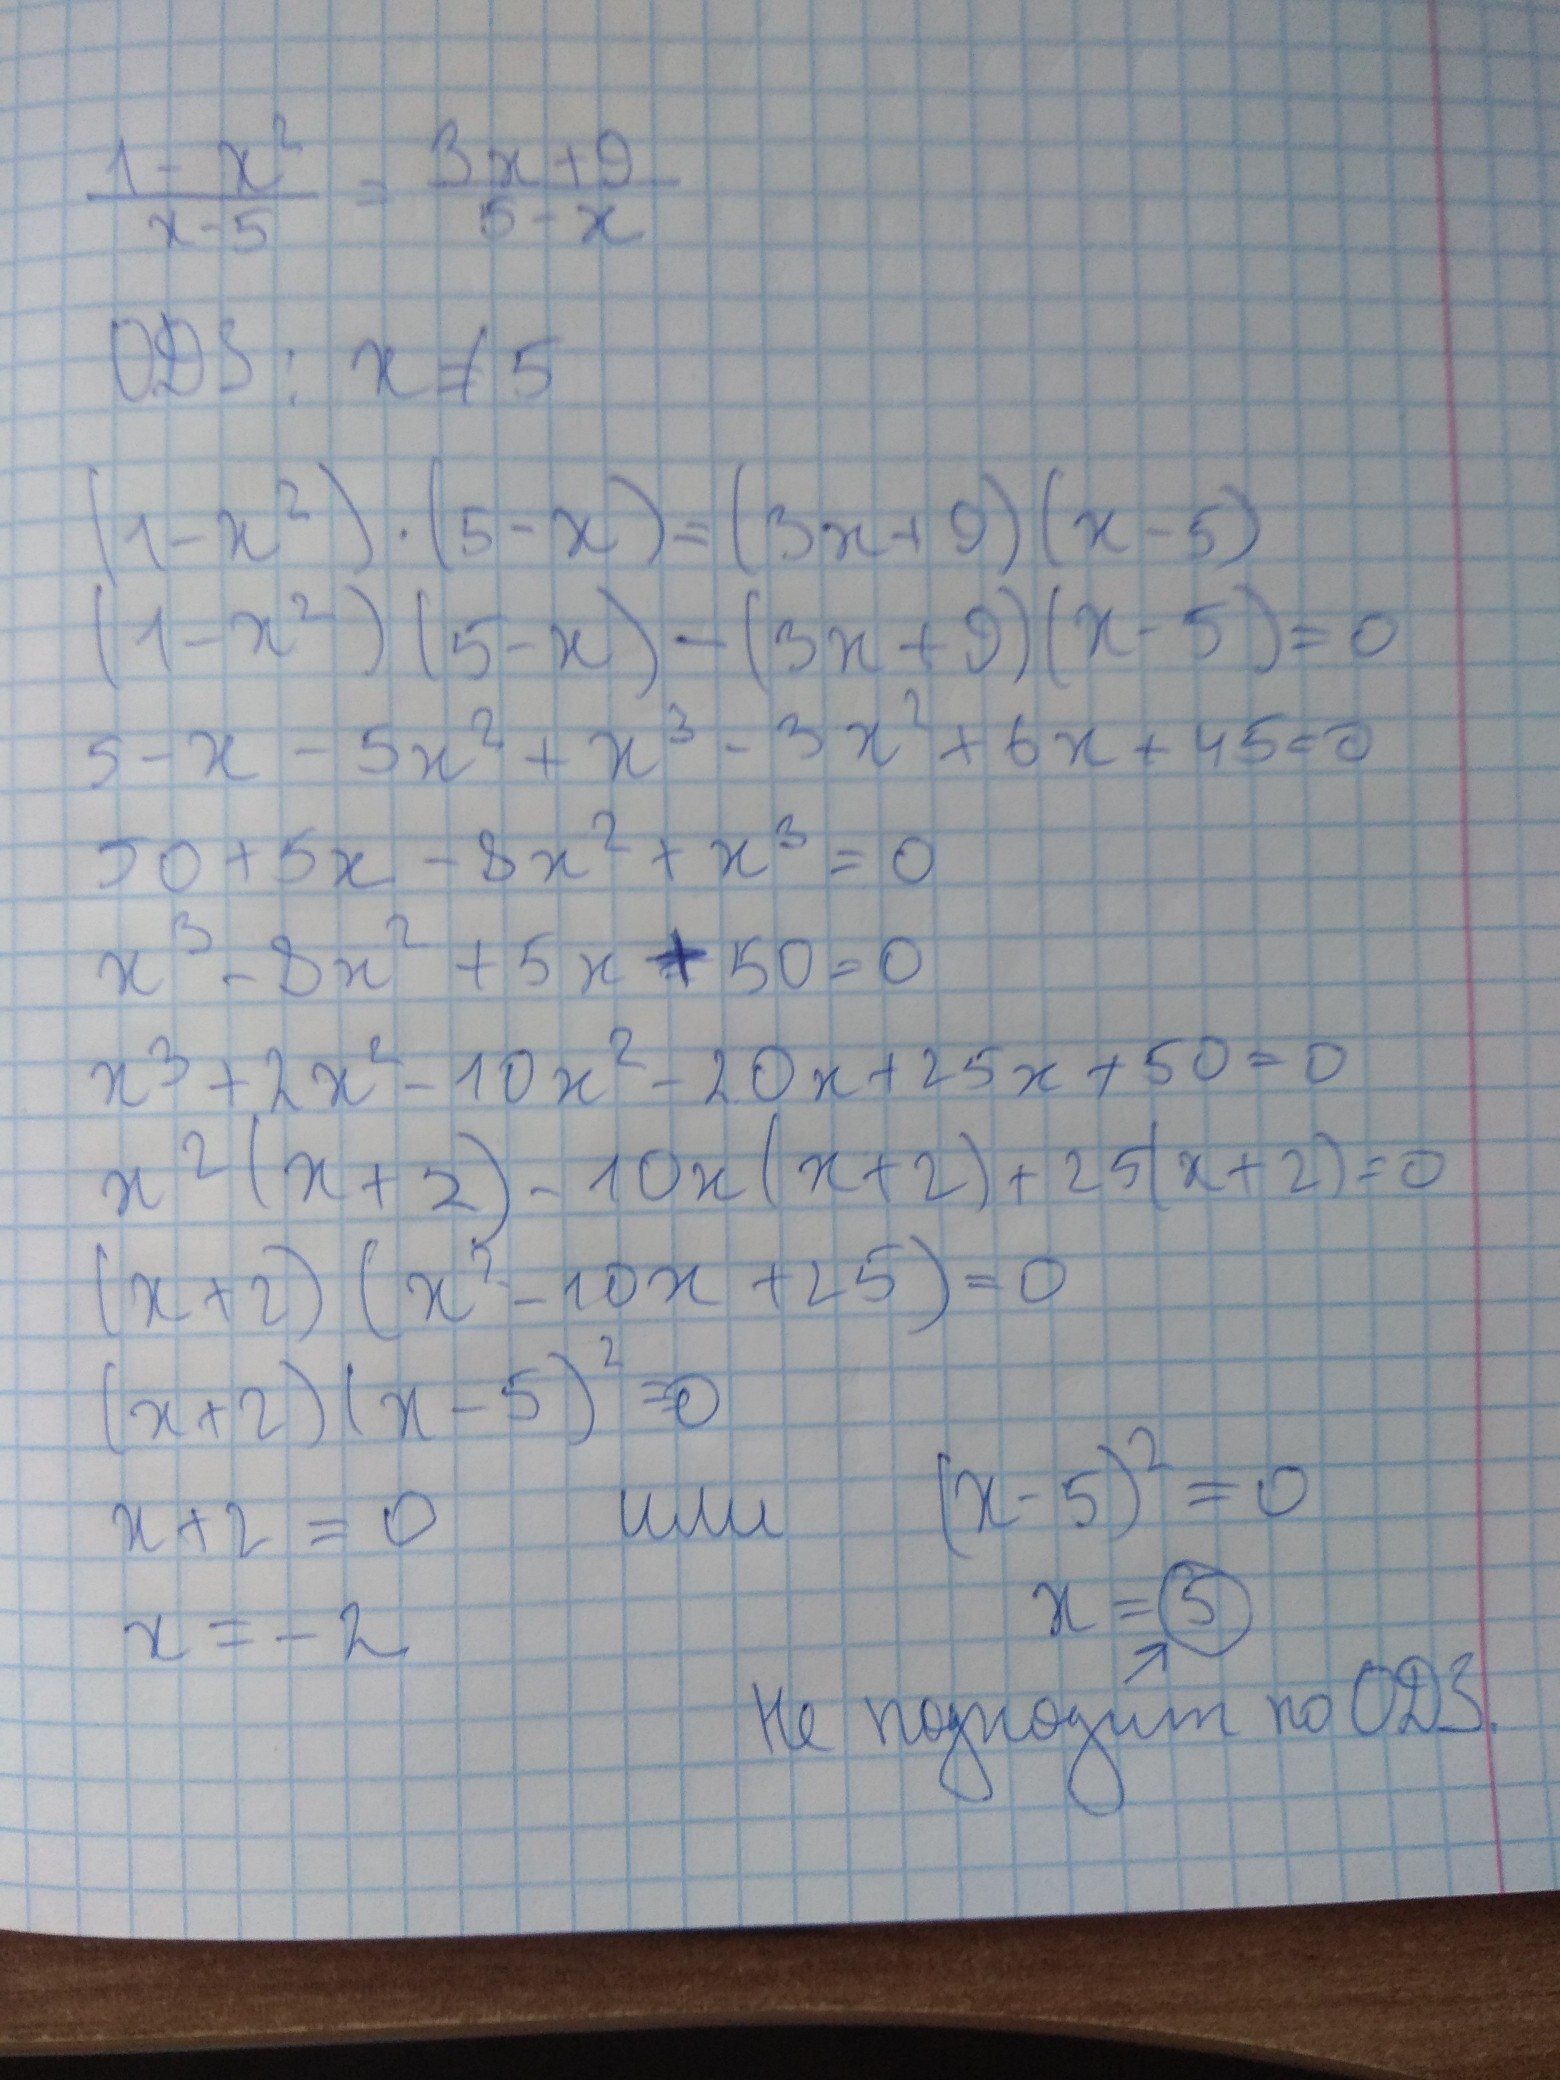 (1-x²)/(x-5) = (3x+9)/(5-x)
ОДЗ: x≠5
(1-x²)·(5-x)=(3x+9)(x-5)
(1-x²)(5-x)-(3x+9)(x-5)=0
5-x-5x²+x³-3x²+6x+45=0
50+5x-8x²+x³=0
x³-8x²+5x+50=0
x³+2x²-10x²-20x+25x+50=0
x²(x+2)-10x(x+2)+25(x+2)=0
(x+2)(x²-10x+25)=0
(x+2)(x-5)²=0
x+2=0 или (x-5)²=0
x=-2 x=5
Не подходит по ОДЗ.